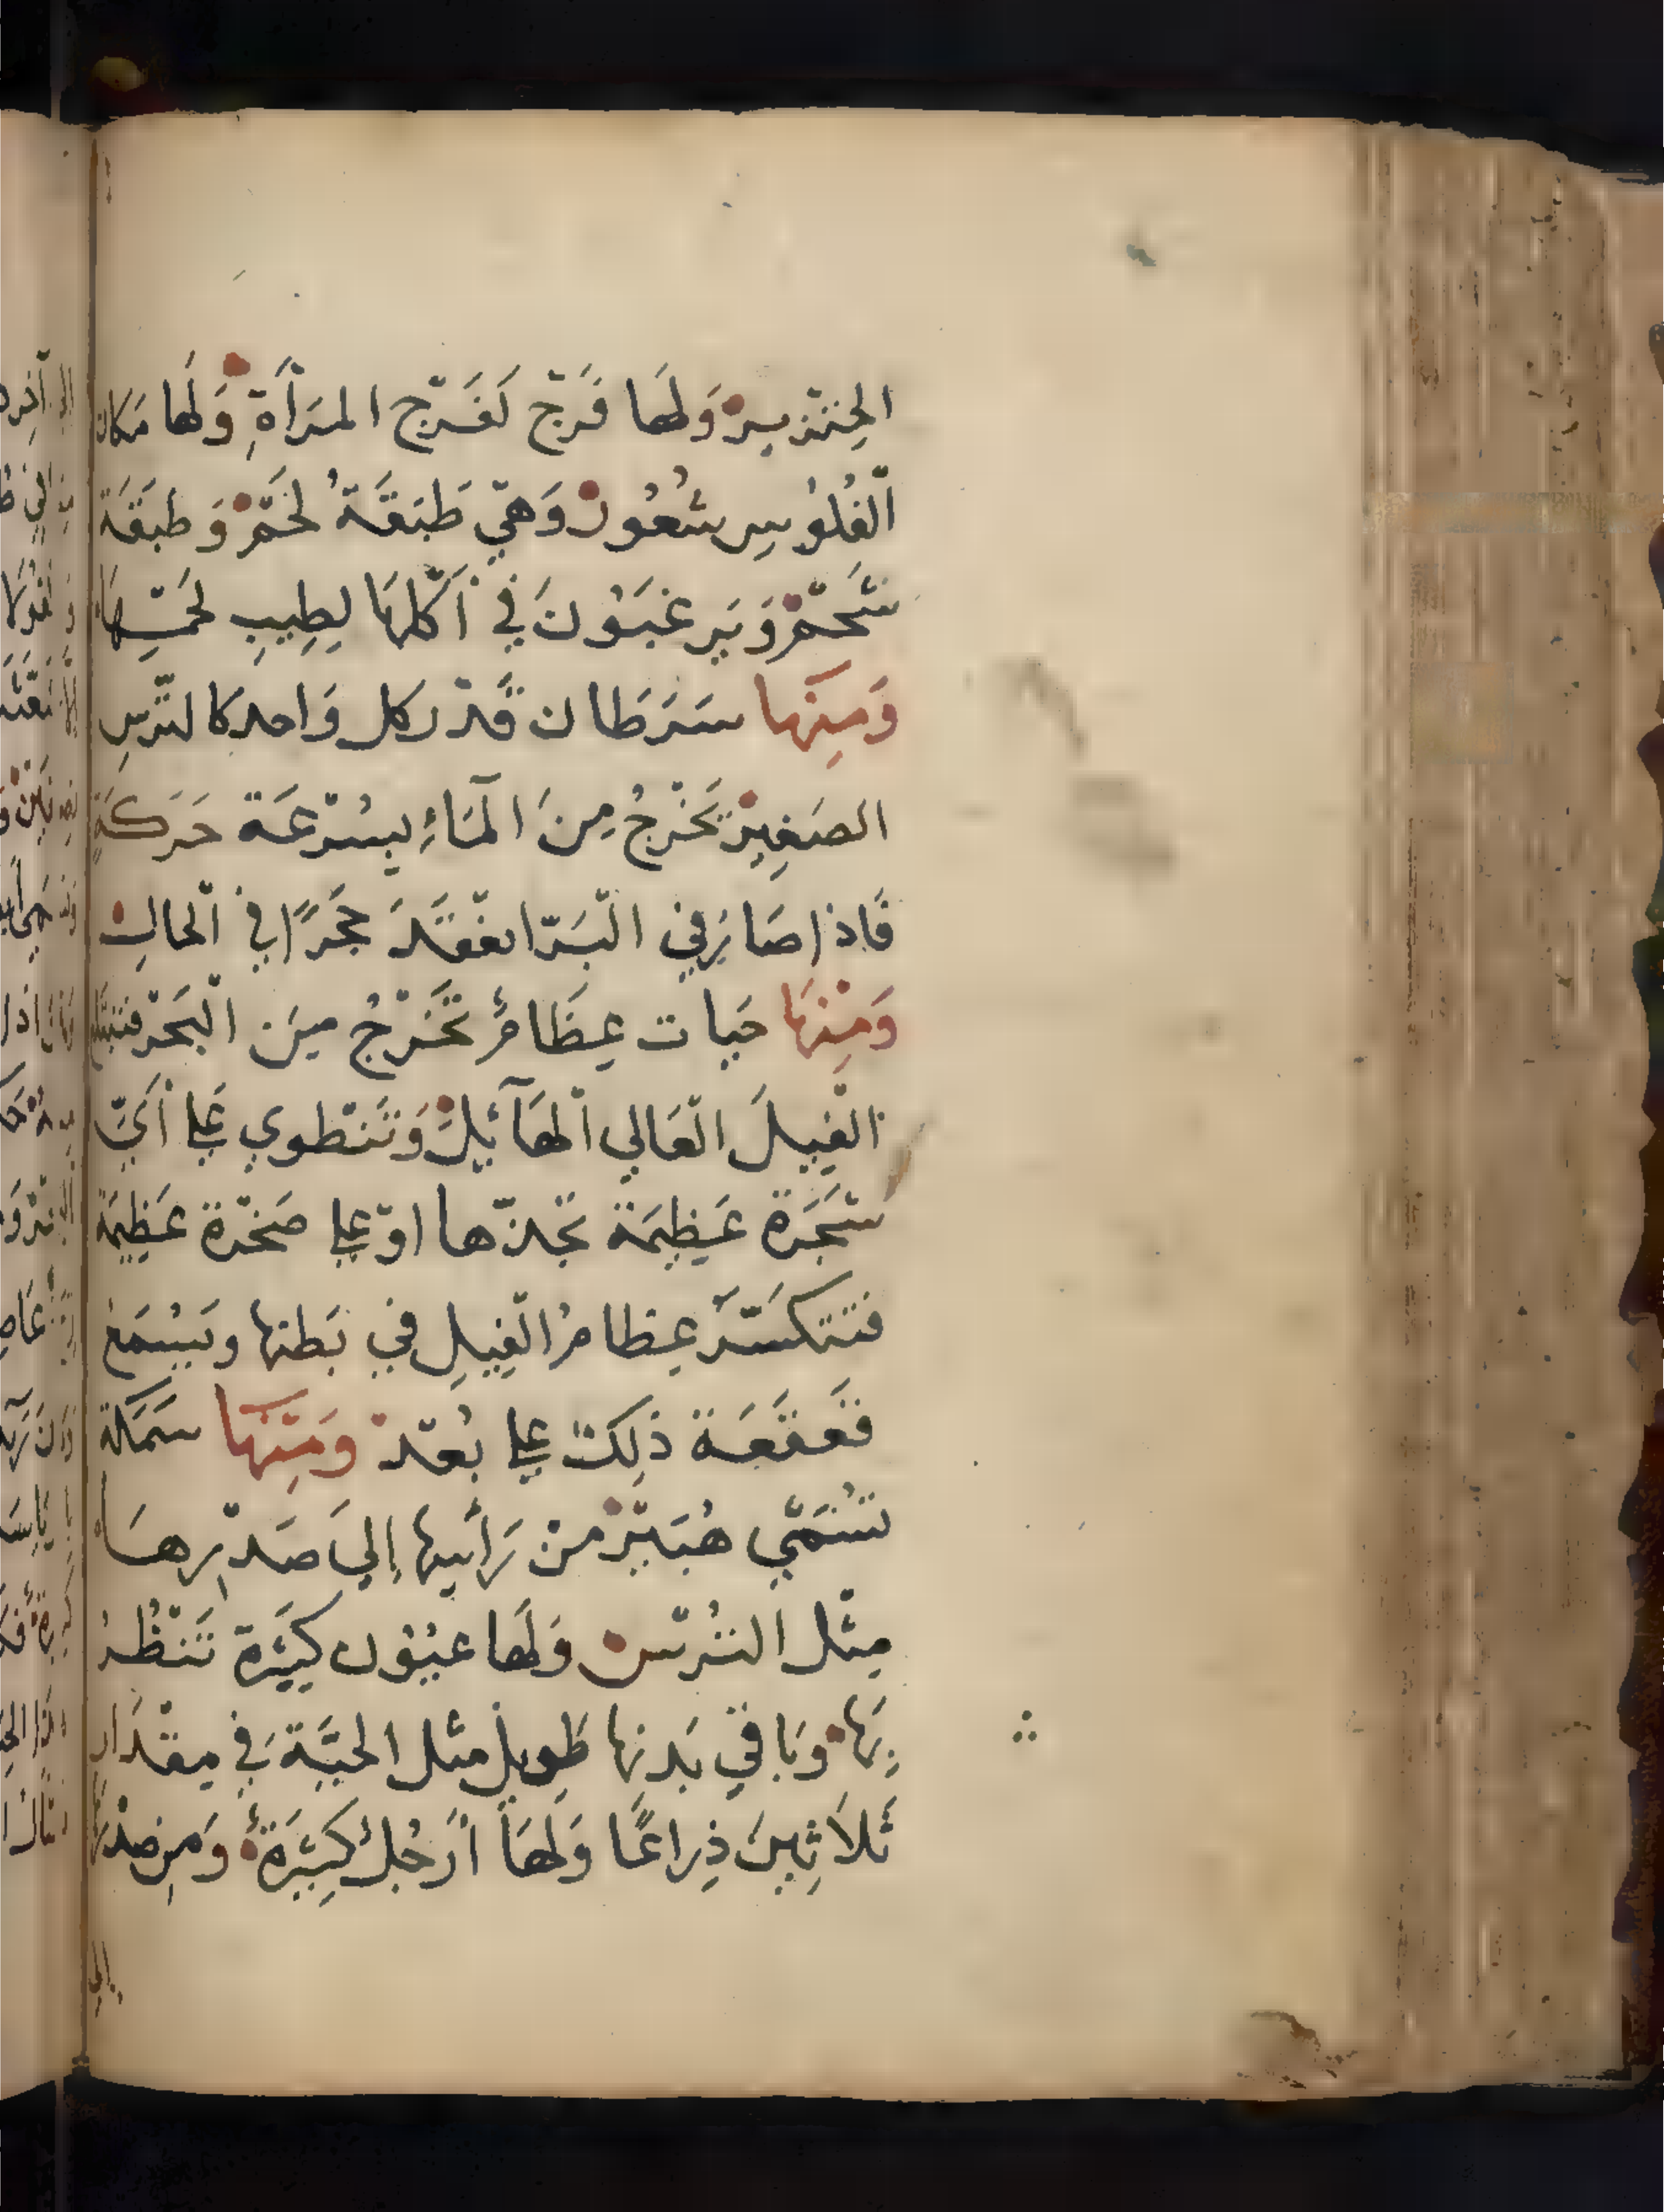 الخِنْزيرْ وَلَها فَرْج كَفَرْج المرَأَةِ وَلَها مَكان
الْفُلُوسِ شُعُورْ وَهْيَ طَبَقَةُ لَحْمْ وَ طَبَقَة
شَحْمْ وَيَرغَبَوُنَ في أَكْلِهَا لِطِيبِ لَحْمِهَا
وَمِنْها سَرَطان قَدْر كل وَاحد كالتُّرسِ
الصَغِيرْ تَخْرجُ مِنَ الْمَآءِ بِسُرْعَة حَرَكَةٍ
فَاذا صَارَفِي الْبَرّ انعْقَدَ حَجَرًا في الْحالِ
وَمِنْهَا حَيات عِظَامْ تَخْرُجُ مِنَ الْبَحْر فتبْتَلع
الْفِيلَ الْعَالي الْهَآئِلْ وَتَنْطوي عَلي أَيّ
شَجَرَة عَظِيمَة تَجدْها اوْ علي صَخْرَة عَظِيمَة
فَتَتكَسَّرَ عِظامُ الْفِيلِ في بَطنها وَيَسْمَعْ
قَعَقَعَة ذٰلِكَ علي بُعْدْ وَمِنْهَا سَمَكَة
تَسَمَّي هُبَيْرْ مِنْ رَأْسِهَا إِليَ صَدْرِهَا
مِثْل التُرْسْ وَلَها عيُوُن كَثيَرة تَنْظُرُ
بِهَا وَبَاقي بَدنِهَا طَوِيل مثل الحيَّة فِي مِقْدَار
ثَلَاثِينَ ذِراعًا وَلَهَا أَرْجُلْ كَثِيرَةْ وَمِن صدْرِهَا
إلي